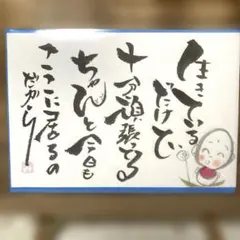 生きている
だけで
十分頑張ってる
ちゃんと今日も
ここに居るの
だから